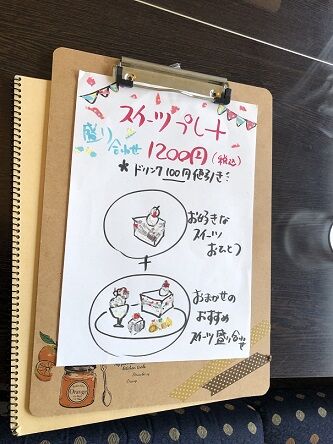 スイーツプレート
盛り合わせ 1200円(税込)
*ドリンク100円値引き!
お好きな
スイーツ
おひとつ
+
おまかせの
おすすめ
スイーツ盛り合わせ
Orange